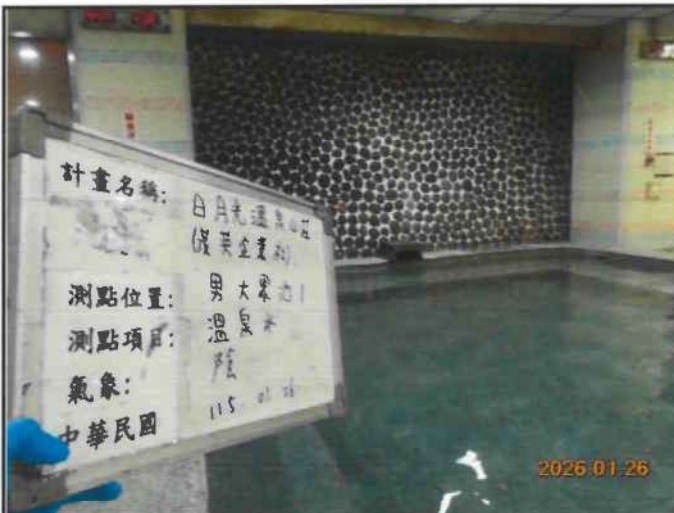 計畫名稱: 日月光溫泉山莊
(漢英企業社)
測點位置: 男大眾池1
測點項目: 溫泉水
氣象: 陰
中華民國 115 01 26
2026.01.26